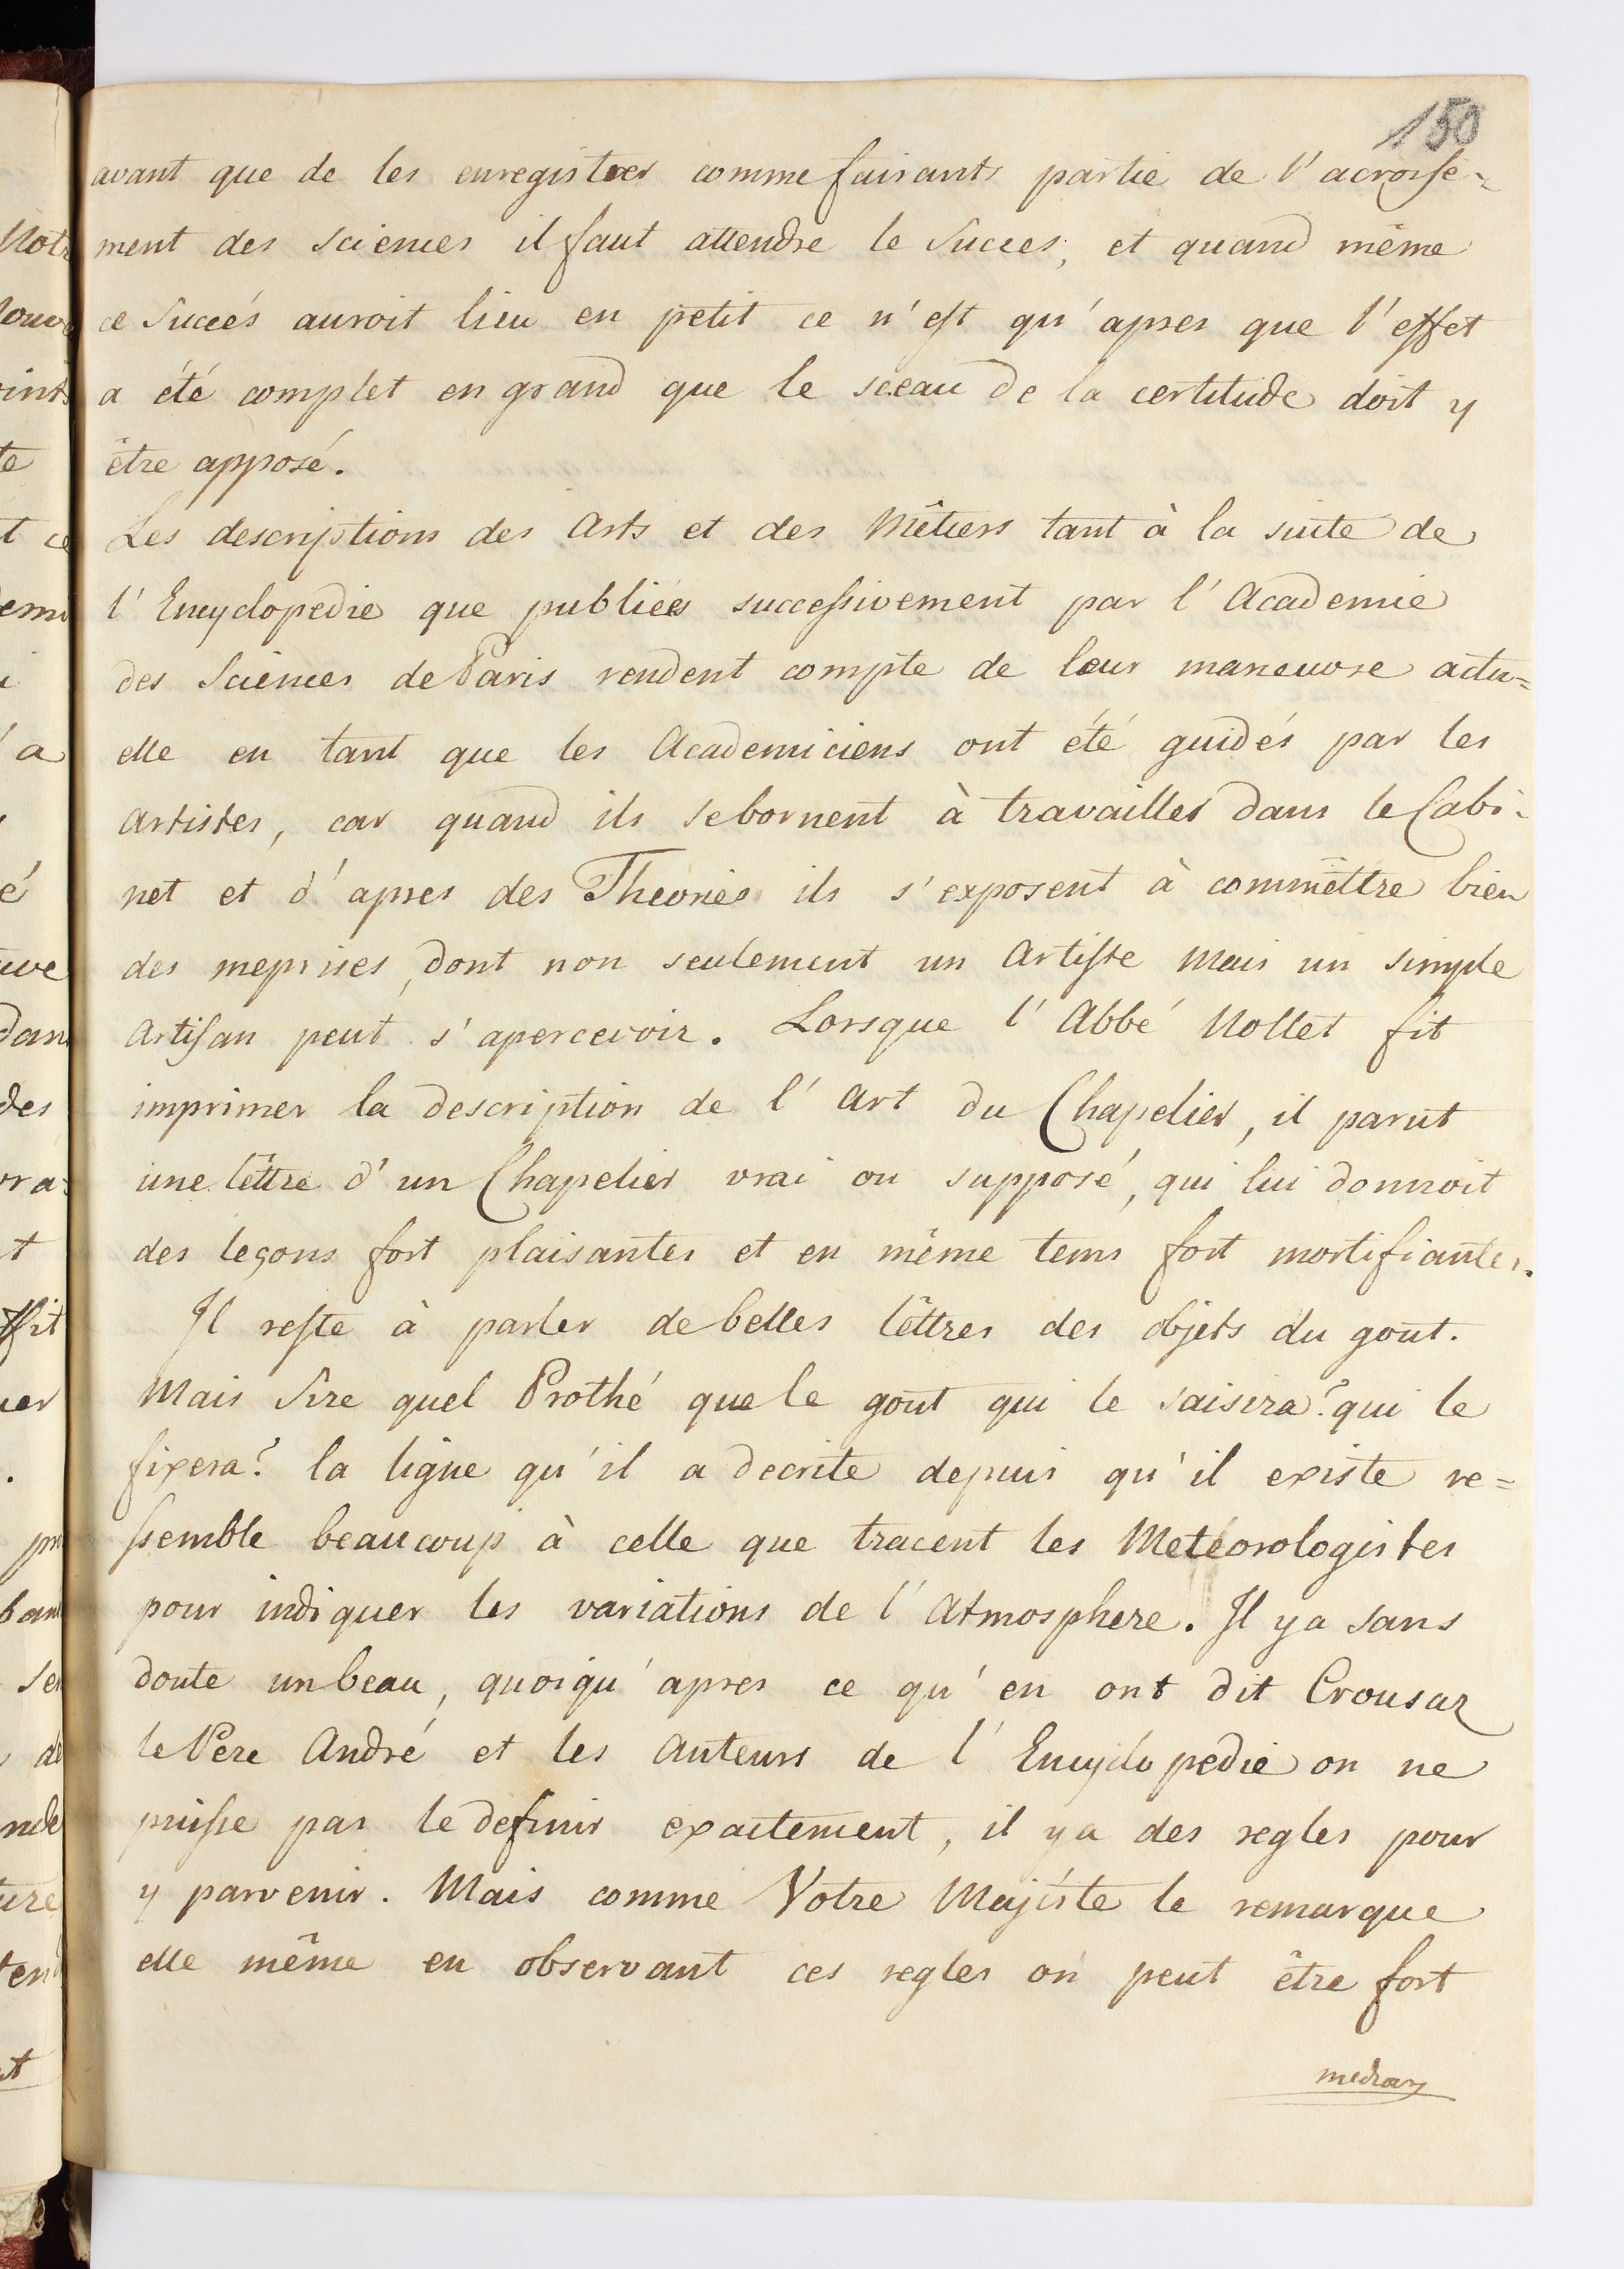 150
avant que de les enregistrer comme faisants partie de l'acroisse=
ment des Sciences il faut attendre le Succes, et quand même
ce Succés auroit lieu en petit ce n'est qu'apres que l'effet
a été complet en grand que le sceau de la certitude doit y
être apposé.
Les descriptions des Arts et des Mêtiers tant à la suite de
l'Encyclopedie que publiées successivement par l'Academie
des Sciences de Paris rendent compte de leur maneuvre actu=
elle en tant que les Academiciens ont été guidés par les
Artistes, car quand ils se bornent à travailler dans le Cabi=
net et d'apres des Theories ils s'exposent à commêttre bien
des meprises, dont non seulement un Artiste Mais un simple
Artisan peut s'apercevoir. Lorsque l'Abbé Nollet fit
imprimer la description de l'Art du Chapelier, il parut
une lêttre d'un Chapelier vrai ou supposé, qui lui donnoit
des leçons fort plaisantes et en même tems fort mortifiantes.
Il reste à parler de belles lêttres des objets du goût.
Mais Sire quel Prothé que le goût qui le saisira? qui le
fixera? la ligne qu'il a decrite depuis qu'il existe re=
ssemble beaucoup à celle que tracent les Metéorologistes
pour indiquer les variations de l'Atmosphere. Il y a sans
doute un beau, quoiqu'apres ce qu'en ont dit Crousaz
le Pere André et les Auteurs de l'Encyclopedie on ne
puisse pas le definir exactement, il y a des regles pour
y parvenir. Mais comme Votre Majesté le remarque
elle même en observant ces regles on peut être fort